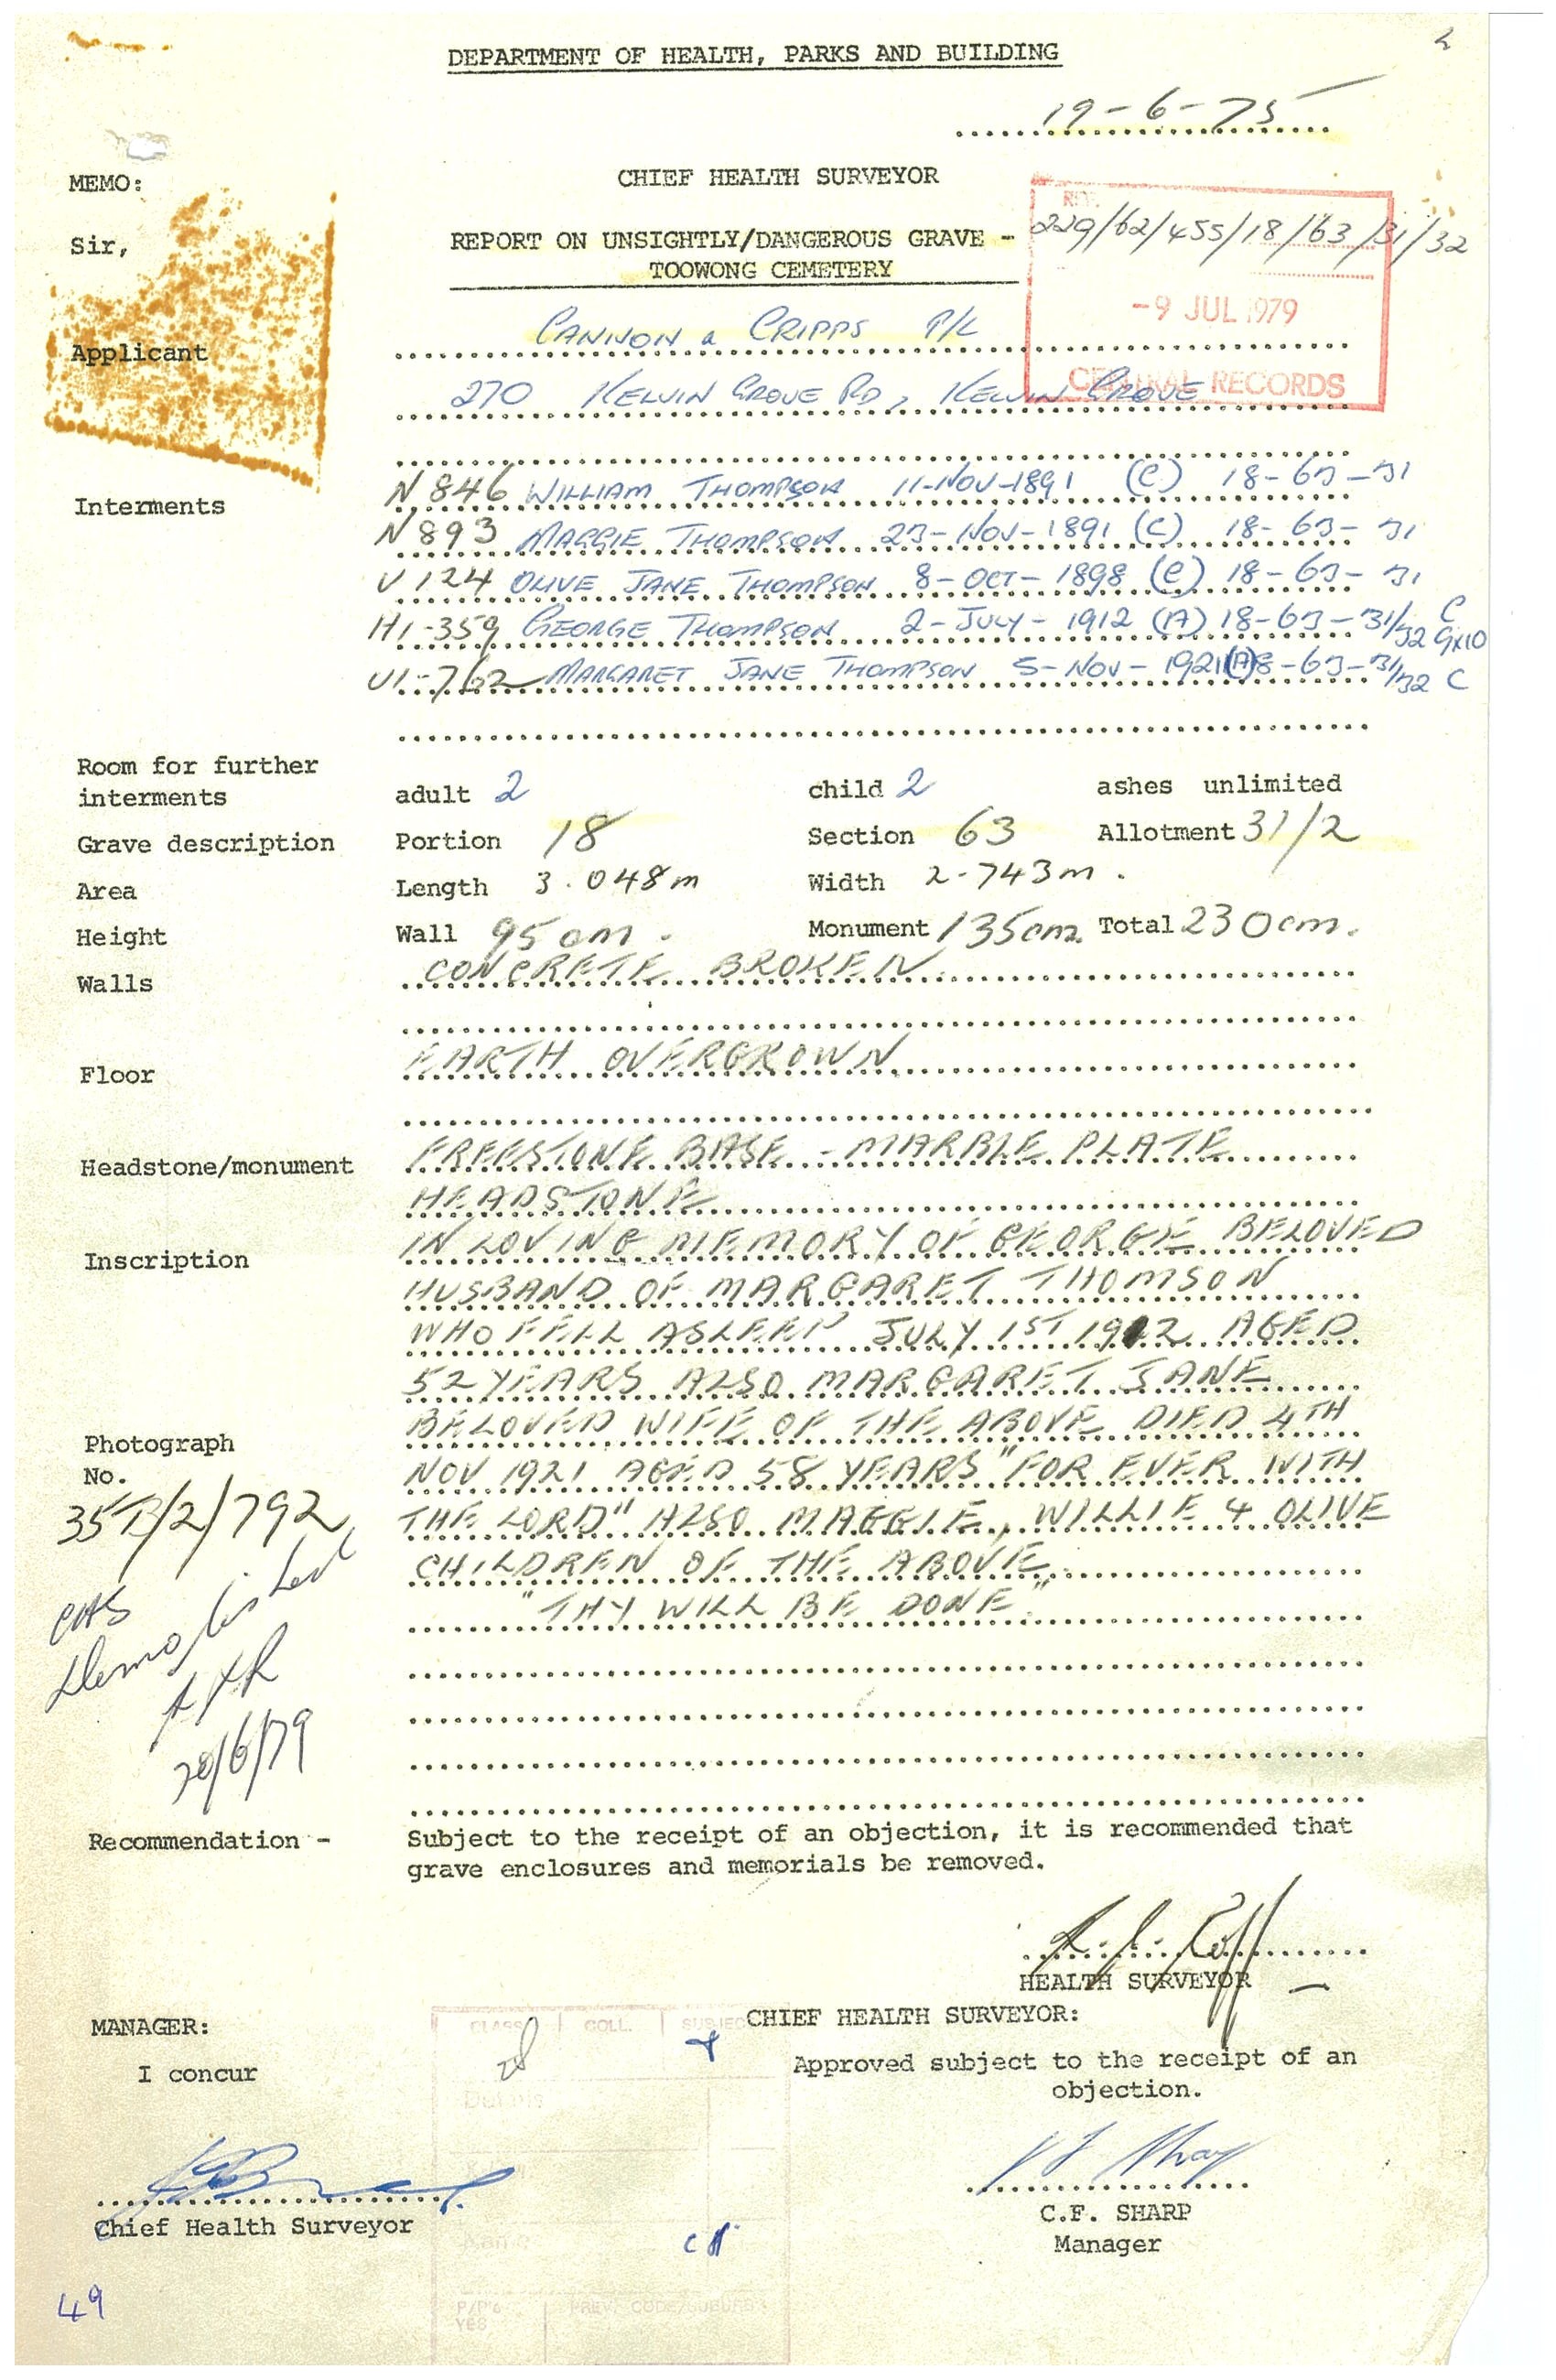 DEPARTMENT OF HEALTH, PARKS AND BUILDING
19-6-75
MEMO:
CHIEF HEALTH SURVEYOR
Sir,
REPORT ON UNSIGHTLY/DANGEROUS GRAVE -
TOOWONG CEMETERY
229/62/455/18/63/31/32
-9 JUL 1979
CENTRAL RECORDS
Applicant
CANNON & CRIPPS P/L
270 KELVIN GROVE RD, KELVIN GROVE
Interments
N 846 WILLIAM THOMPSON 11-NOV-1891 (C) 18-63-31
N 893 MAGGIE THOMPSON 23-NOV-1891 (C) 18-63-31
U 124 OLIVE JANE THOMPSON 8-OCT-1898 (C) 18-63-31
H1-359 GEORGE THOMPSON 2-JULY-1912 (A) 18-63-31/32 C 9x10
U1-762 MARGARET JANE THOMPSON 5-NOV-1921 (A) 18-63-31/32 C
Room for further
interments adult 2 child 2 ashes unlimited
Grave description Portion 18 Section 63 Allotment 31/2
Area Length 3.048m Width 2.743m.
Height Wall 95cm. Monument 135cm. Total 230cm.
Walls CONCRETE BROKEN
Floor EARTH OVERGROWN
Headstone/monument FREESTONE BASE - MARBLE PLATE
HEADSTONE
Inscription IN LOVING MEMORY OF GEORGE BELOVED
HUSBAND OF MARGARET THOMSON
WHO FELL ASLEEP JULY 1ST 1912 AGED
52 YEARS ALSO MARGARET JANE
BELOVED WIFE OF THE ABOVE DIED 4TH
NOV 1921 AGED 58 YEARS "FOR EVER WITH
THE LORD" ALSO MAGGIE, WILLIE & OLIVE
CHILDREN OF THE ABOVE
"THY WILL BE DONE"
Photograph
No.
CHS
Demolished
20/6/79
Recommendation - Subject to the receipt of an objection, it is recommended that
grave enclosures and memorials be removed.
HEALTH SURVEYOR
MANAGER:
CHIEF HEALTH SURVEYOR:
I concur
Approved subject to the receipt of an
objection.
CLASS COLL. SUBJECT
Chief Health Surveyor
C.F. SHARP
Manager
49